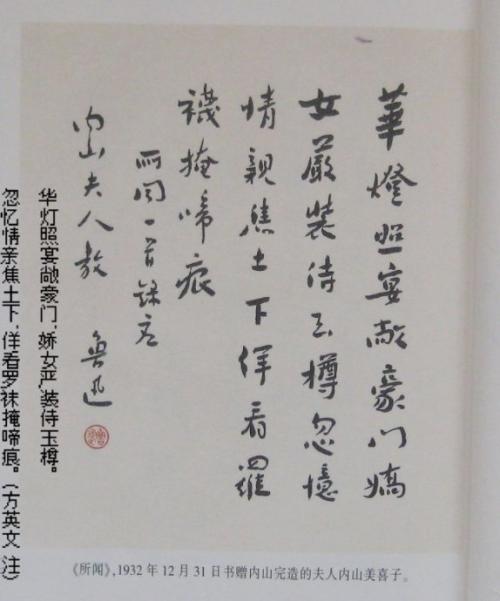 華燈照宴敞豪门嬌
女嚴裝侍玉樽忽憶
情親焦土下佯看羅
襪掩啼痕
所闻一首録应
内山夫人教
鲁迅
华灯照宴敞豪门，娇女严装侍玉樽。
忽忆情亲焦土下，佯看罗袜掩啼痕。（方英文 注）
《所闻》，1932年12月31日书赠内山完造的夫人内山美喜子。